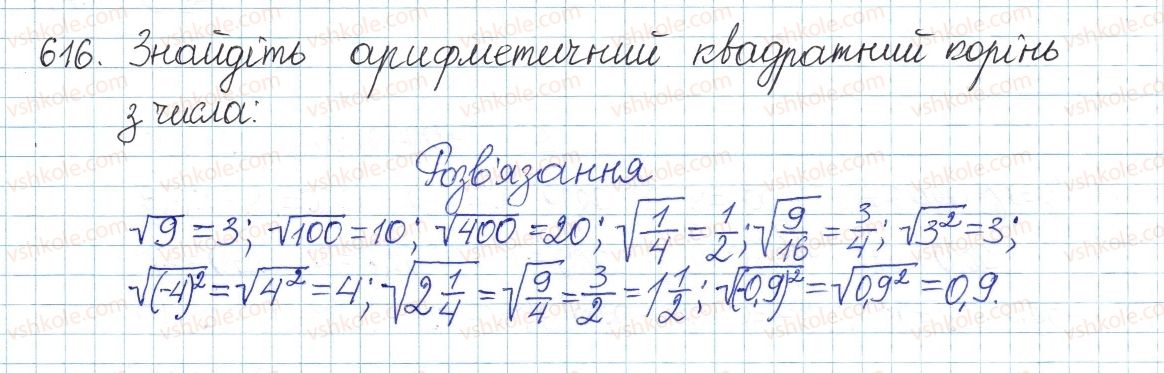 616. Знайдіть арифметичний квадратний корінь
з числа:
Розв'язання
√9 = 3; √100 = 10; √400 = 20; √(1/4) = 1/2; √(9/16) = 3/4; √(3²) = 3;
√((-4)²) = √(4²) = 4; √(2 1/4) = √(9/4) = 3/2 = 1 1/2; √((-0,9)²) = √(0,9²) = 0,9.